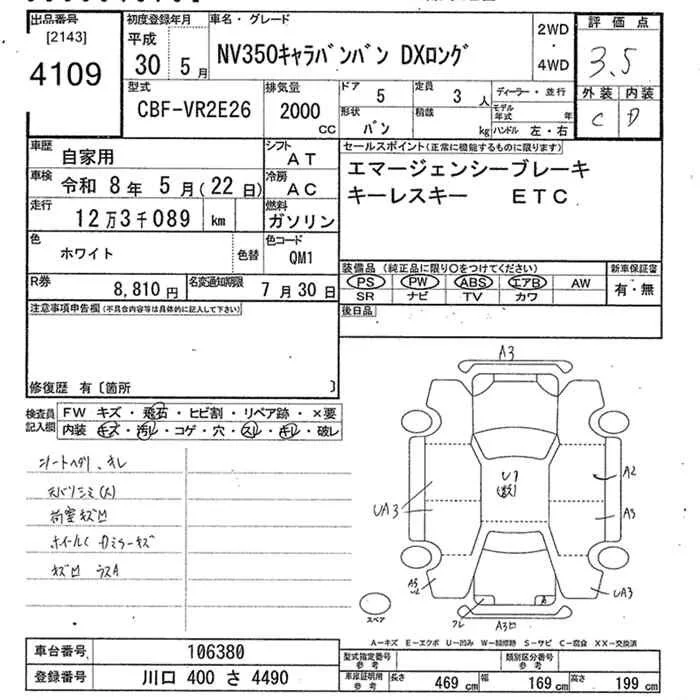 出品番号
[2143]
4109
初度登録年月
平成
30 5月
車名・グレード
NV350キャラバンバン DXロング
2WD
・
4WD
評価点
3.5
外装 内装
C D
型式
CBF-VR2E26
排気量
2000
CC
ドア
5
定員
3 人
形状
バン
積載
kg
ディーラー・並行
モデル年式 年
ハンドル 左・右
車歴
自家用
シフト
AT
車検
令和 8年 5月(22日)
冷房
AC
走行
12万3千089 km
燃料
ガソリン
色
ホワイト
色替
色コード
QM1
R券
8,810円
名変通知期限
7月30日
セールスポイント(正常に機能するものに限ります)
エマージェンシーブレーキ
キーレスキー ETC
装備品(純正品に限り○をつけてください)
PS PW ABS エアB AW
SR ナビ TV カワ
新車保証書
有・無
後日品
注意事項申告欄(不具合内容等は具体的に記入して下さい)
修復歴 有〔箇所 〕
検査員
記入欄
FW キズ・飛石・ヒビ割・リペア跡・×要
内装 キズ・汚レ・コゲ・穴・スレ・キレ・破レ
シートヘタリ、キレ
天バリシミ(大)
荷室キズ凹
ホイールC Dミラーキズ
キズ凹 ラスA
A3
U1
A2
A3
UA3
UA3
A3
フレ
A
A3
スペア
A－キズ E－エクボ U－凹み W－補修跡 S－サビ C－腐食 XX－交換済
車台番号
106380
登録番号
川口 400 さ 4490
型式指定番号
参考
類別区分番号
参考
車庫証明用
参考
長さ 469 cm 幅 169 cm 高さ 199 cm